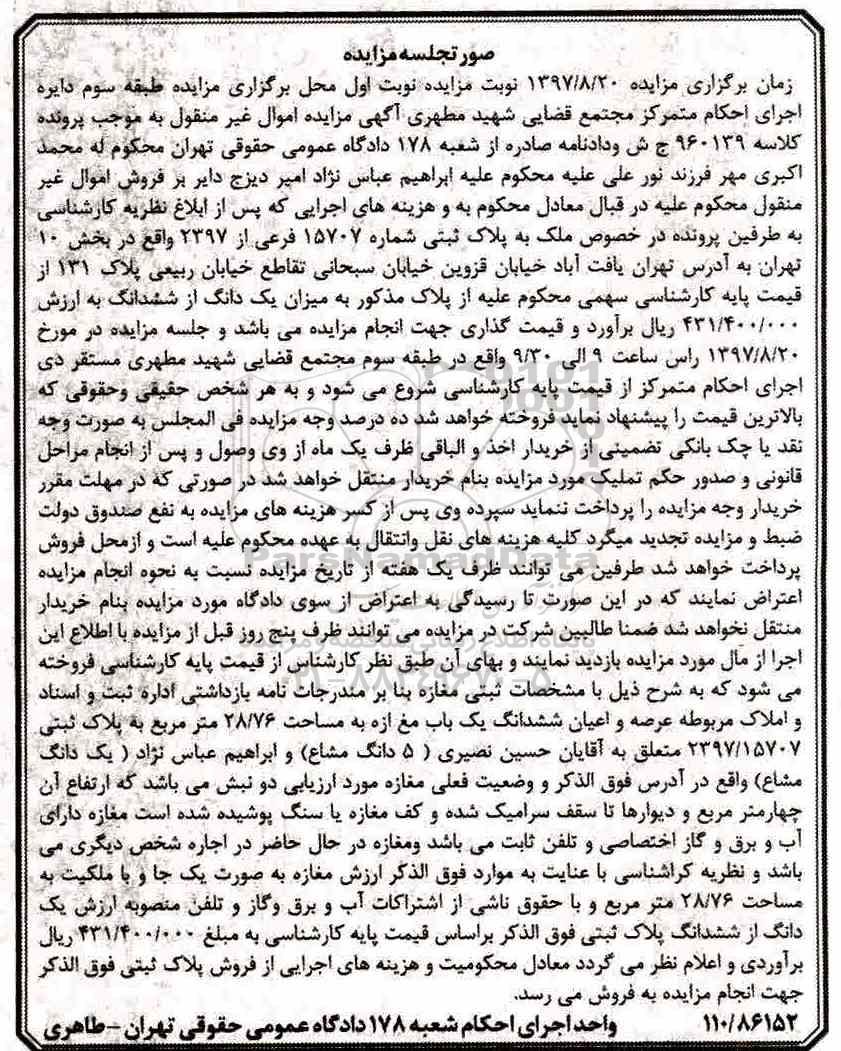 صورتجلسه مزایده
زمان برگزاری مزایده ۱۳۹۷/۸/۲۰ نوبت مزایده نوبت اول محل برگزاری مزایده طبقه سوم دایره
اجرای احکام متمرکز مجتمع قضایی شهید مطهری آگهی مزایده اموال غیر منقول به موجب پرونده
کلاسه ۹۶۰۱۳۹ ج ش ودادنامه صادره از شعبه ۱۷۸ دادگاه عمومی حقوقی تهران محکوم له محمد
اکبری مهر فرزند نور علی علیه محکوم علیه ابراهیم عباس نژاد امیر دیزج دایر بر فروش اموال غیر
منقول محکوم علیه در قبال معادل محکوم به و هزینه های اجرایی که پس از ابلاغ نظریه کارشناسی
به طرفین پرونده در خصوص ملک به پلاک ثبتی شماره ۱۵۷۰۷ فرعی از ۲۳۹۷ واقع در بخش ۱۰
تهران به آدرس تهران یافت آباد خیابان قزوین خیابان سبحانی تقاطع خیابان ربیعی پلاک ۱۳۱ از
قیمت پایه کارشناسی سهمی محکوم علیه از پلاک مذکور به میزان یک دانگ از ششدانگ به ارزش
۴۳۱/۴۰۰/۰۰۰ ریال برآورد و قیمت گذاری جهت انجام مزایده می باشد و جلسه مزایده در مورخ
۱۳۹۷/۸/۲۰ راس ساعت ۹ الی ۹/۳۰ واقع در طبقه سوم مجتمع قضایی شهید مطهری مستقر دی
اجرای احکام متمرکز از قیمت پایه کارشناسی شروع می شود و به هر شخص حقیقی وحقوقی که
بالاترین قیمت را پیشنهاد نماید فروخته خواهد شد ده درصد وجه مزایده فی المجلس به صورت وجه
نقد یا چک بانکی تضمینی از خریدار اخذ و الباقی ظرف یک ماه از وی وصول و پس از انجام مراحل
قانونی و صدور حکم تملیک مورد مزایده بنام خریدار منتقل خواهد شد در صورتی که در مهلت مقرر
خریدار وجه مزایده را پرداخت ننماید سپرده وی پس از کسر هزینه های مزایده به نفع صندوق دولت
ضبط و مزایده تجدید میگرد کلیه هزینه های نقل وانتقال به عهده محکوم علیه است و ازمحل فروش
پرداخت خواهد شد طرفین می توانند ظرف یک هفته از تاریخ مزایده نسبت به نحوه انجام مزایده
اعتراض نمایند که در این صورت تا رسیدگی به اعتراض از سوی دادگاه مورد مزایده بنام خریدار
منتقل نخواهد شد ضمنا طالبین شرکت در مزایده می توانند ظرف پنج روز قبل از مزایده با اطلاع این
اجرا از مال مورد مزایده بازدید نمایند و بهای آن طبق نظر کارشناس از قیمت پایه کارشناسی فروخته
می شود که به شرح ذیل با مشخصات ثبتی مغازه بنا بر مندرجات نامه بازداشتی اداره ثبت و اسناد
و املاک مربوطه عرصه و اعیان ششدانگ یک باب مغ ازه به مساحت ۲۸/۷۶ متر مربع به پلاک ثبتی
۲۳۹۷/۱۵۷۰۷ متعلق به آقایان حسین نصیری ( ۵ دانگ مشاع) و ابراهیم عباس نژاد ( یک دانگ
مشاع) واقع در آدرس فوق الذکر و وضعیت فعلی مغازه مورد ارزیابی دو نبش می باشد که ارتفاع آن
چهارمتر مربع و دیوارها تا سقف سرامیک شده و کف مغازه یا سنگ پوشیده شده است مغازه دارای
آب و برق و گاز اختصاصی و تلفن ثابت می باشد ومغازه در حال حاضر در اجاره شخص دیگری می
باشد و نظریه کراشناسی با عنایت به موارد فوق الذکر ارزش مغازه به صورت یک جا و با ملکیت به
مساحت ۲۸/۷۶ متر مربع و با حقوق ناشی از اشتراکات آب و برق وگاز و تلفن منصوبه ارزش یک
دانگ از ششدانگ پلاک ثبتی فوق الذکر براساس قیمت پایه کارشناسی به مبلغ ۴۳۱/۴۰۰/۰۰۰ ریال
برآوردی و اعلام نظر می گردد معادل محکومیت و هزینه های اجرایی از فروش پلاک ثبتی فوق الذکر
جهت انجام مزایده به فروش می رسد.
۱۱۰/۸۶۱۵۲ واحد اجرای احکام شعبه ۱۷۸ دادگاه عمومی حقوقی تهران - طاهری
ParsNamadData
۰۲۱-۸۸۳۴۹۶۷۰-۵